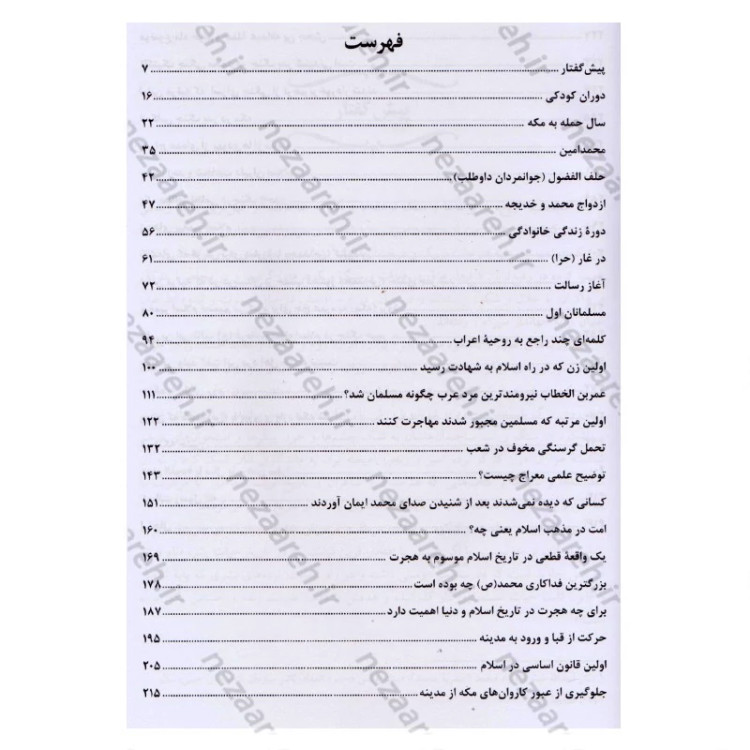 فهرست
پیش‌گفتار ........ ۷
دوران کودکی ........ ۱۶
سال حمله به مکه ........ ۲۲
محمدامین ........ ۳۵
حلف الفضول (جوانمردان داوطلب) ........ ۴۲
ازدواج محمد و خدیجه ........ ۴۷
دورۀ زندگی خانوادگی ........ ۵۶
در غار (حرا) ........ ۶۱
آغاز رسالت ........ ۷۲
مسلمانان اول ........ ۸۰
کلمه‌ای چند راجع به روحیۀ اعراب ........ ۹۴
اولین زن که در راه اسلام به شهادت رسید ........ ۱۰۰
عمربن الخطاب نیرومندترین مرد عرب چگونه مسلمان شد؟ ........ ۱۱۱
اولین مرتبه که مسلمین مجبور شدند مهاجرت کنند ........ ۱۲۲
تحمل گرسنگی مخوف در شعب ........ ۱۳۲
توضیح علمی معراج چیست؟ ........ ۱۴۳
کسانی که دیده نمی‌شدند بعد از شنیدن صدای محمد ایمان آوردند ........ ۱۵۱
امت در مذهب اسلام یعنی چه؟ ........ ۱۶۰
یک واقعۀ قطعی در تاریخ اسلام موسوم به هجرت ........ ۱۶۹
بزرگترین فداکاری محمد(ص) چه بوده است ........ ۱۷۸
برای چه هجرت در تاریخ اسلام و دنیا اهمیت دارد ........ ۱۸۷
حرکت از قبا و ورود به مدینه ........ ۱۹۵
اولین قانون اساسی در اسلام ........ ۲۰۵
جلوگیری از عبور کاروان‌های مکه از مدینه ........ ۲۱۵
nezaareh.ir